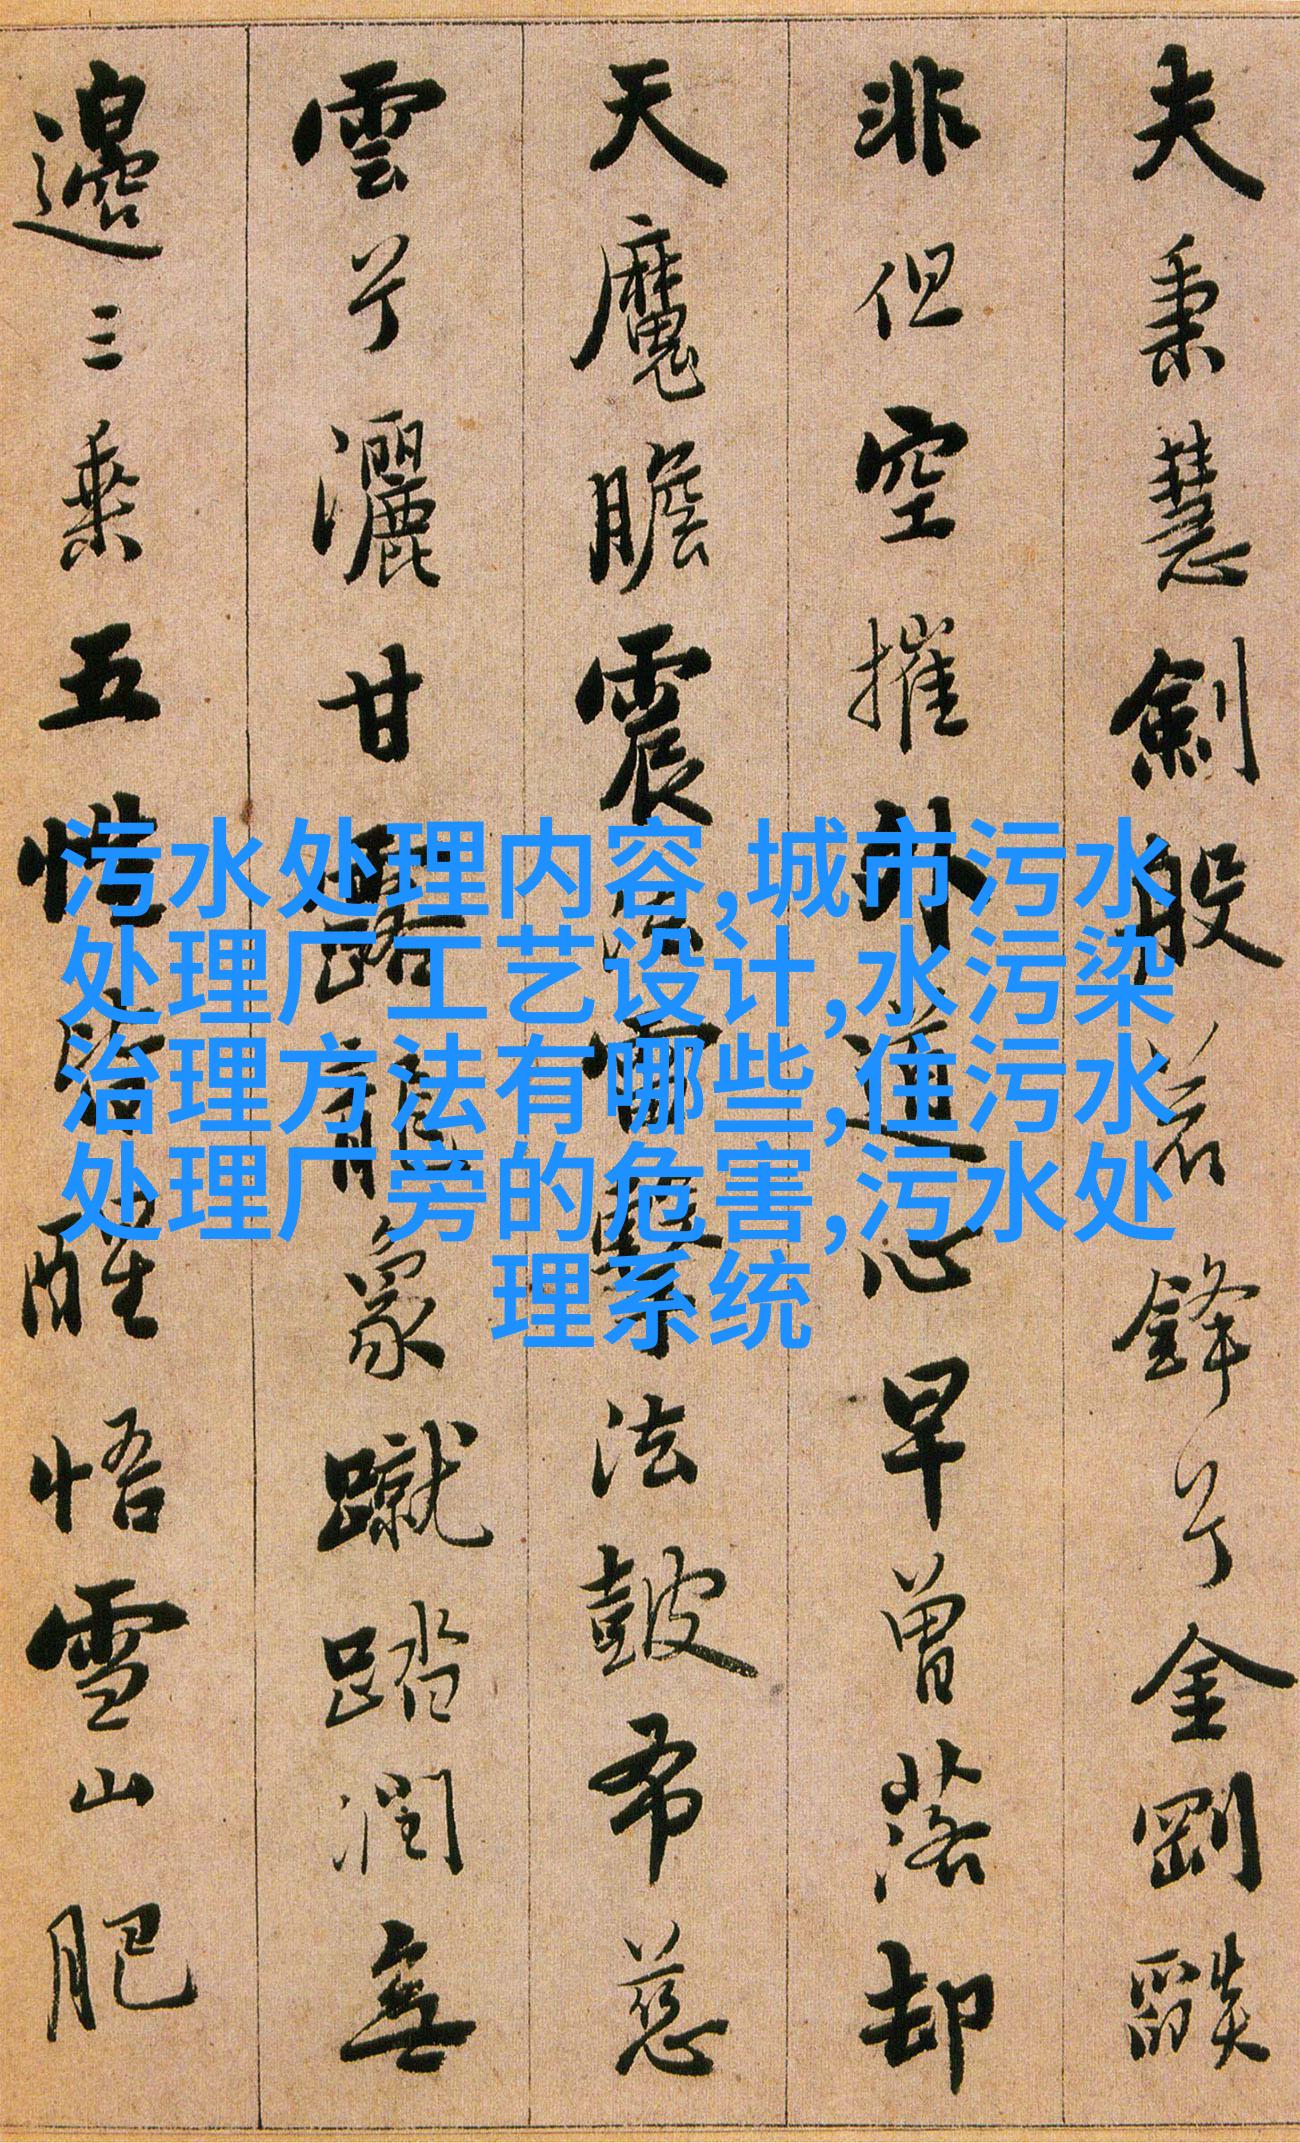 夫秉慧劍般若鋒兮金剛燄
非但空摧外道心早曾落却
天魔膽震法雷擊法鼓布慈
雲兮灑甘露龍象蹴踏潤無
邊三乘五性皆醒悟雪山肥
污水处理内容,城市污水
处理厂工艺设计,水污染
治理方法有哪些,住污水
处理厂旁的危害,污水处
理系统